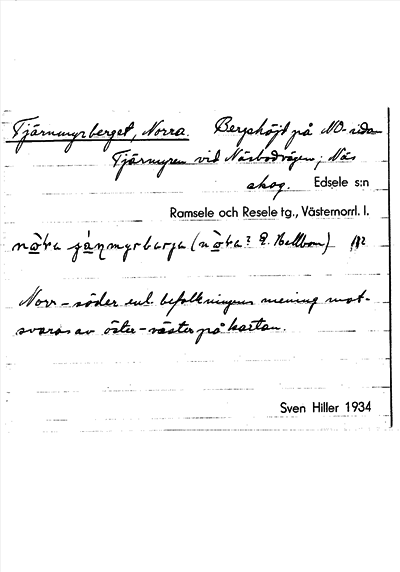 Tjärnmyrberget, Norra. Bergshöjd på NO-sidan
Tjärnmyren vid Näsbodvägen; Näs
skog. Edsele s:n
Ramsele och Resele tg., Västernorrl. l.
(nòra? E. Hellbom)
Norr–söder enl. befolkningens mening mot-
svaras av öster–väster på kartan.
Sven Hiller 1934